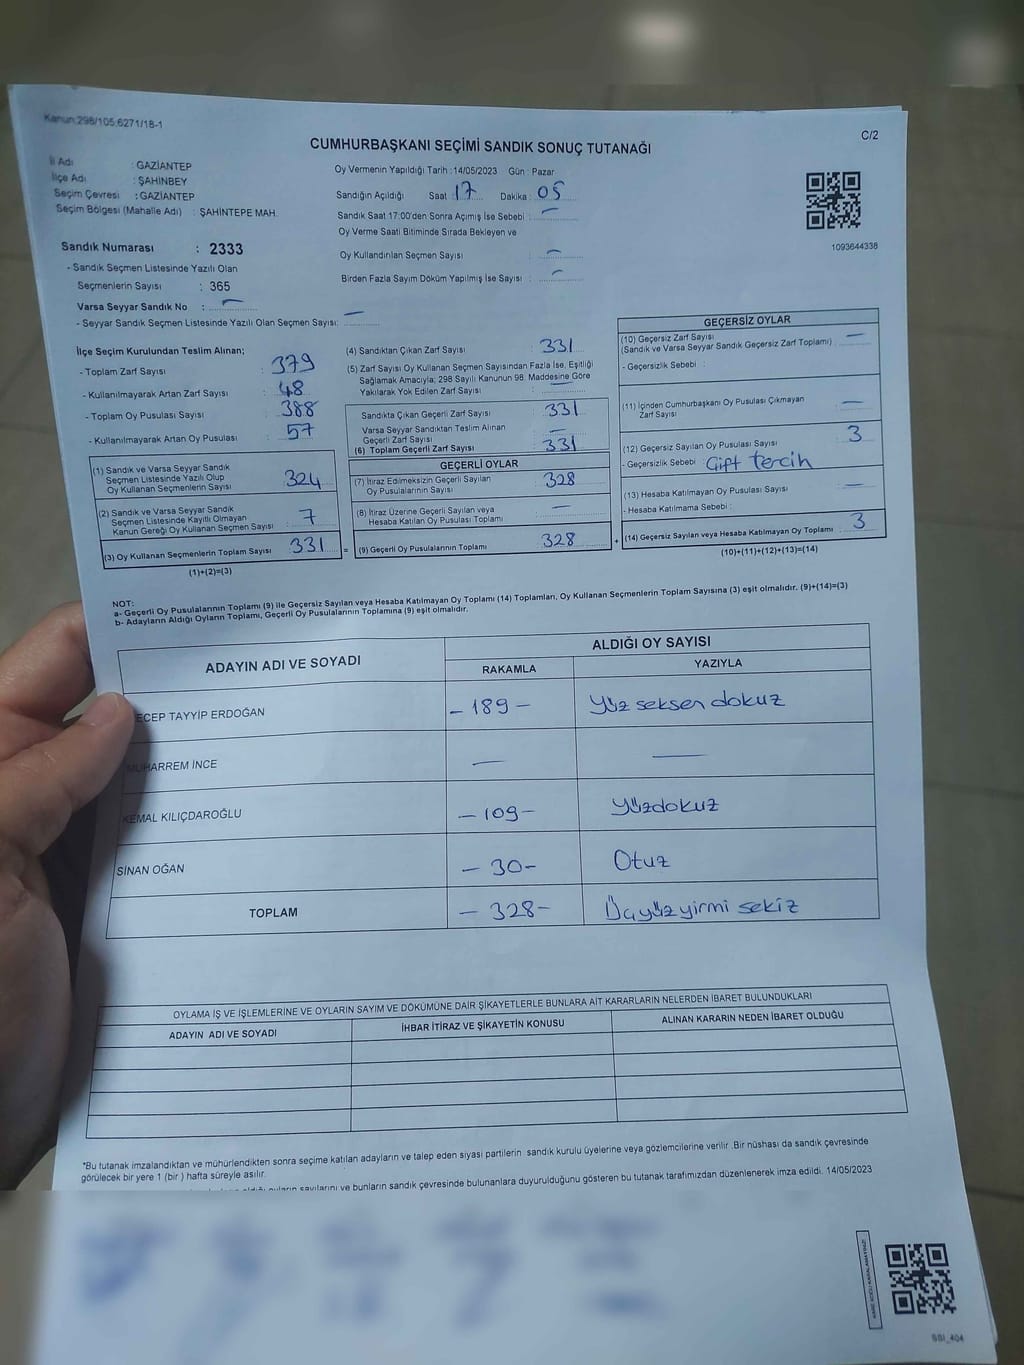 Kanun:298/105;6271/18-1
C/2
CUMHURBAŞKANI SEÇİMİ SANDIK SONUÇ TUTANAĞI
İl Adı : GAZİANTEP
İlçe Adı : ŞAHİNBEY
Seçim Çevresi : GAZİANTEP
Seçim Bölgesi (Mahalle Adı) : ŞAHİNTEPE MAH.
Oy Vermenin Yapıldığı Tarih : 14/05/2023 Gün : Pazar
Sandığın Açıldığı Saat 17 Dakika : 05
Sandık Saat 17:00'den Sonra Açımış İse Sebebi : —
Oy Verme Saati Bitiminde Sırada Bekleyen ve
Oy Kullandırılan Seçmen Sayısı : —
Birden Fazla Sayım Döküm Yapılmış İse Sayısı : —
1093644338
Sandık Numarası : 2333
- Sandık Seçmen Listesinde Yazılı Olan
Seçmenlerin Sayısı : 365
Varsa Seyyar Sandık No : —
- Seyyar Sandık Seçmen Listesinde Yazılı Olan Seçmen Sayısı: —
İlçe Seçim Kurulundan Teslim Alınan;
- Toplam Zarf Sayısı : 379
- Kullanılmayarak Artan Zarf Sayısı : 48
- Toplam Oy Pusulası Sayısı : 388
- Kullanılmayarak Artan Oy Pusulası : 57
(1) Sandık ve Varsa Seyyar Sandık
Seçmen Listesinde Yazılı Olup
Oy Kullanan Seçmenlerin Sayısı : 324
(2) Sandık ve Varsa Seyyar Sandık
Seçmen Listesinde Kayıtlı Olmayan
Kanun Gereği Oy Kullanan Seçmen Sayısı : 7
(3) Oy Kullanan Seçmenlerin Toplam Sayısı : 331 =
(1)+(2)=(3)
(4) Sandıktan Çıkan Zarf Sayısı : 331
(5) Zarf Sayısı Oy Kullanan Seçmen Sayısından Fazla İse, Eşitliği
Sağlamak Amacıyla; 298 Sayılı Kanunun 98. Maddesine Göre
Yakılarak Yok Edilen Zarf Sayısı : —
Sandıkta Çıkan Geçerli Zarf Sayısı : 331
Varsa Seyyar Sandıktan Teslim Alınan
Geçerli Zarf Sayısı : —
(6) Toplam Geçerli Zarf Sayısı : 331
GEÇERLİ OYLAR
(7) İtiraz Edilmeksizin Geçerli Sayılan
Oy Pusulalarının Sayısı : 328
(8) İtiraz Üzerine Geçerli Sayılan veya
Hesaba Katılan Oy Pusulası Toplamı : —
(9) Geçerli Oy Pusulalarının Toplamı : 328 +
GEÇERSİZ OYLAR
(10) Geçersiz Zarf Sayısı
(Sandık ve Varsa Seyyar Sandık Geçersiz Zarf Toplamı) : —
- Geçersizlik Sebebi :
(11) İçinden Cumhurbaşkanı Oy Pusulası Çıkmayan
Zarf Sayısı : —
(12) Geçersiz Sayılan Oy Pusulası Sayısı : 3
- Geçersizlik Sebebi Çift tercih
(13) Hesaba Katılmayan Oy Pusulası Sayısı : —
- Hesaba Katılmama Sebebi :
(14) Geçersiz Sayılan veya Hesaba Katılmayan Oy Toplamı : 3
(10)+(11)+(12)+(13)=(14)
NOT:
a- Geçerli Oy Pusulalarının Toplamı (9) ile Geçersiz Sayılan veya Hesaba Katılmayan Oy Toplamı (14) Toplamları, Oy Kullanan Seçmenlerin Toplam Sayısına (3) eşit olmalıdır. (9)+(14)=(3)
b- Adayların Aldığı Oyların Toplamı, Geçerli Oy Pusulalarının Toplamına (9) eşit olmalıdır.
ADAYIN ADI VE SOYADI ALDIĞI OY SAYISI
RAKAMLA YAZIYLA
ECEP TAYYİP ERDOĞAN - 189 - Yüz seksen dokuz
MUHARREM İNCE — —
KEMAL KILIÇDAROĞLU - 109 - Yüzdokuz
SİNAN OĞAN - 30 - Otuz
TOPLAM - 328 - Üçyüzyirmi sekiz
OYLAMA İŞ VE İŞLEMLERİNE VE OYLARIN SAYIM VE DÖKÜMÜNE DAİR ŞİKAYETLERLE BUNLARA AİT KARARLARIN NELERDEN İBARET BULUNDUKLARI
ADAYIN ADI VE SOYADI İHBAR İTİRAZ VE ŞİKAYETİN KONUSU ALINAN KARARIN NEDEN İBARET OLDUĞU
*Bu tutanak imzalandıktan ve mühürlendikten sonra seçime katılan adayların ve talep eden siyasi partilerin sandık kurulu üyelerine veya gözlemcilerine verilir .Bir nüshası da sandık çevresinde
görülecek bir yere 1 (bir ) hafta süreyle asılır.
sayılarını ve bunların sandık çevresinde bulunanlara duyurulduğunu gösteren bu tutanak tarafımızdan düzenlenerek imza edildi. 14/05/2023
SSI_404